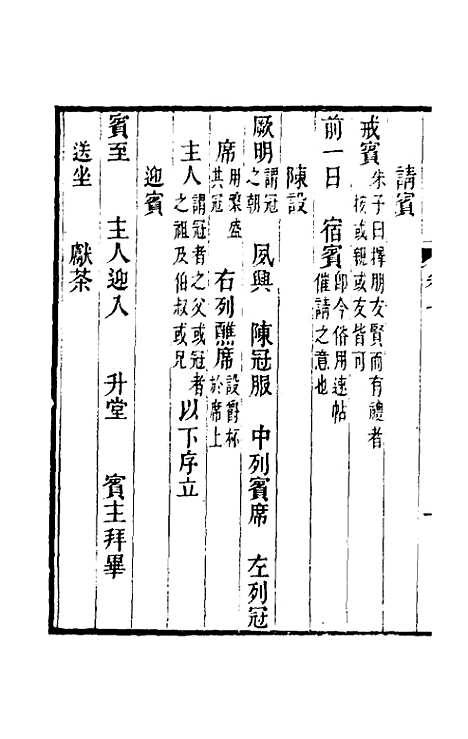 請賓
戒賓朱子曰擇朋友賢而有禮者
按或親或友皆可
前一日 宿賓即今俗用速帖
催請之意也
陳設
厥明謂冠
之朝 夙興 陳冠服 中列賓席 左列冠
席用棗盛
其冠 右列醮席設爵杯
於席上
主人謂冠者之父或冠者
之祖及伯叔或兄 以下序立
迎賓
賓至 主人迎入 升堂 賓主拜畢
送坐 獻茶